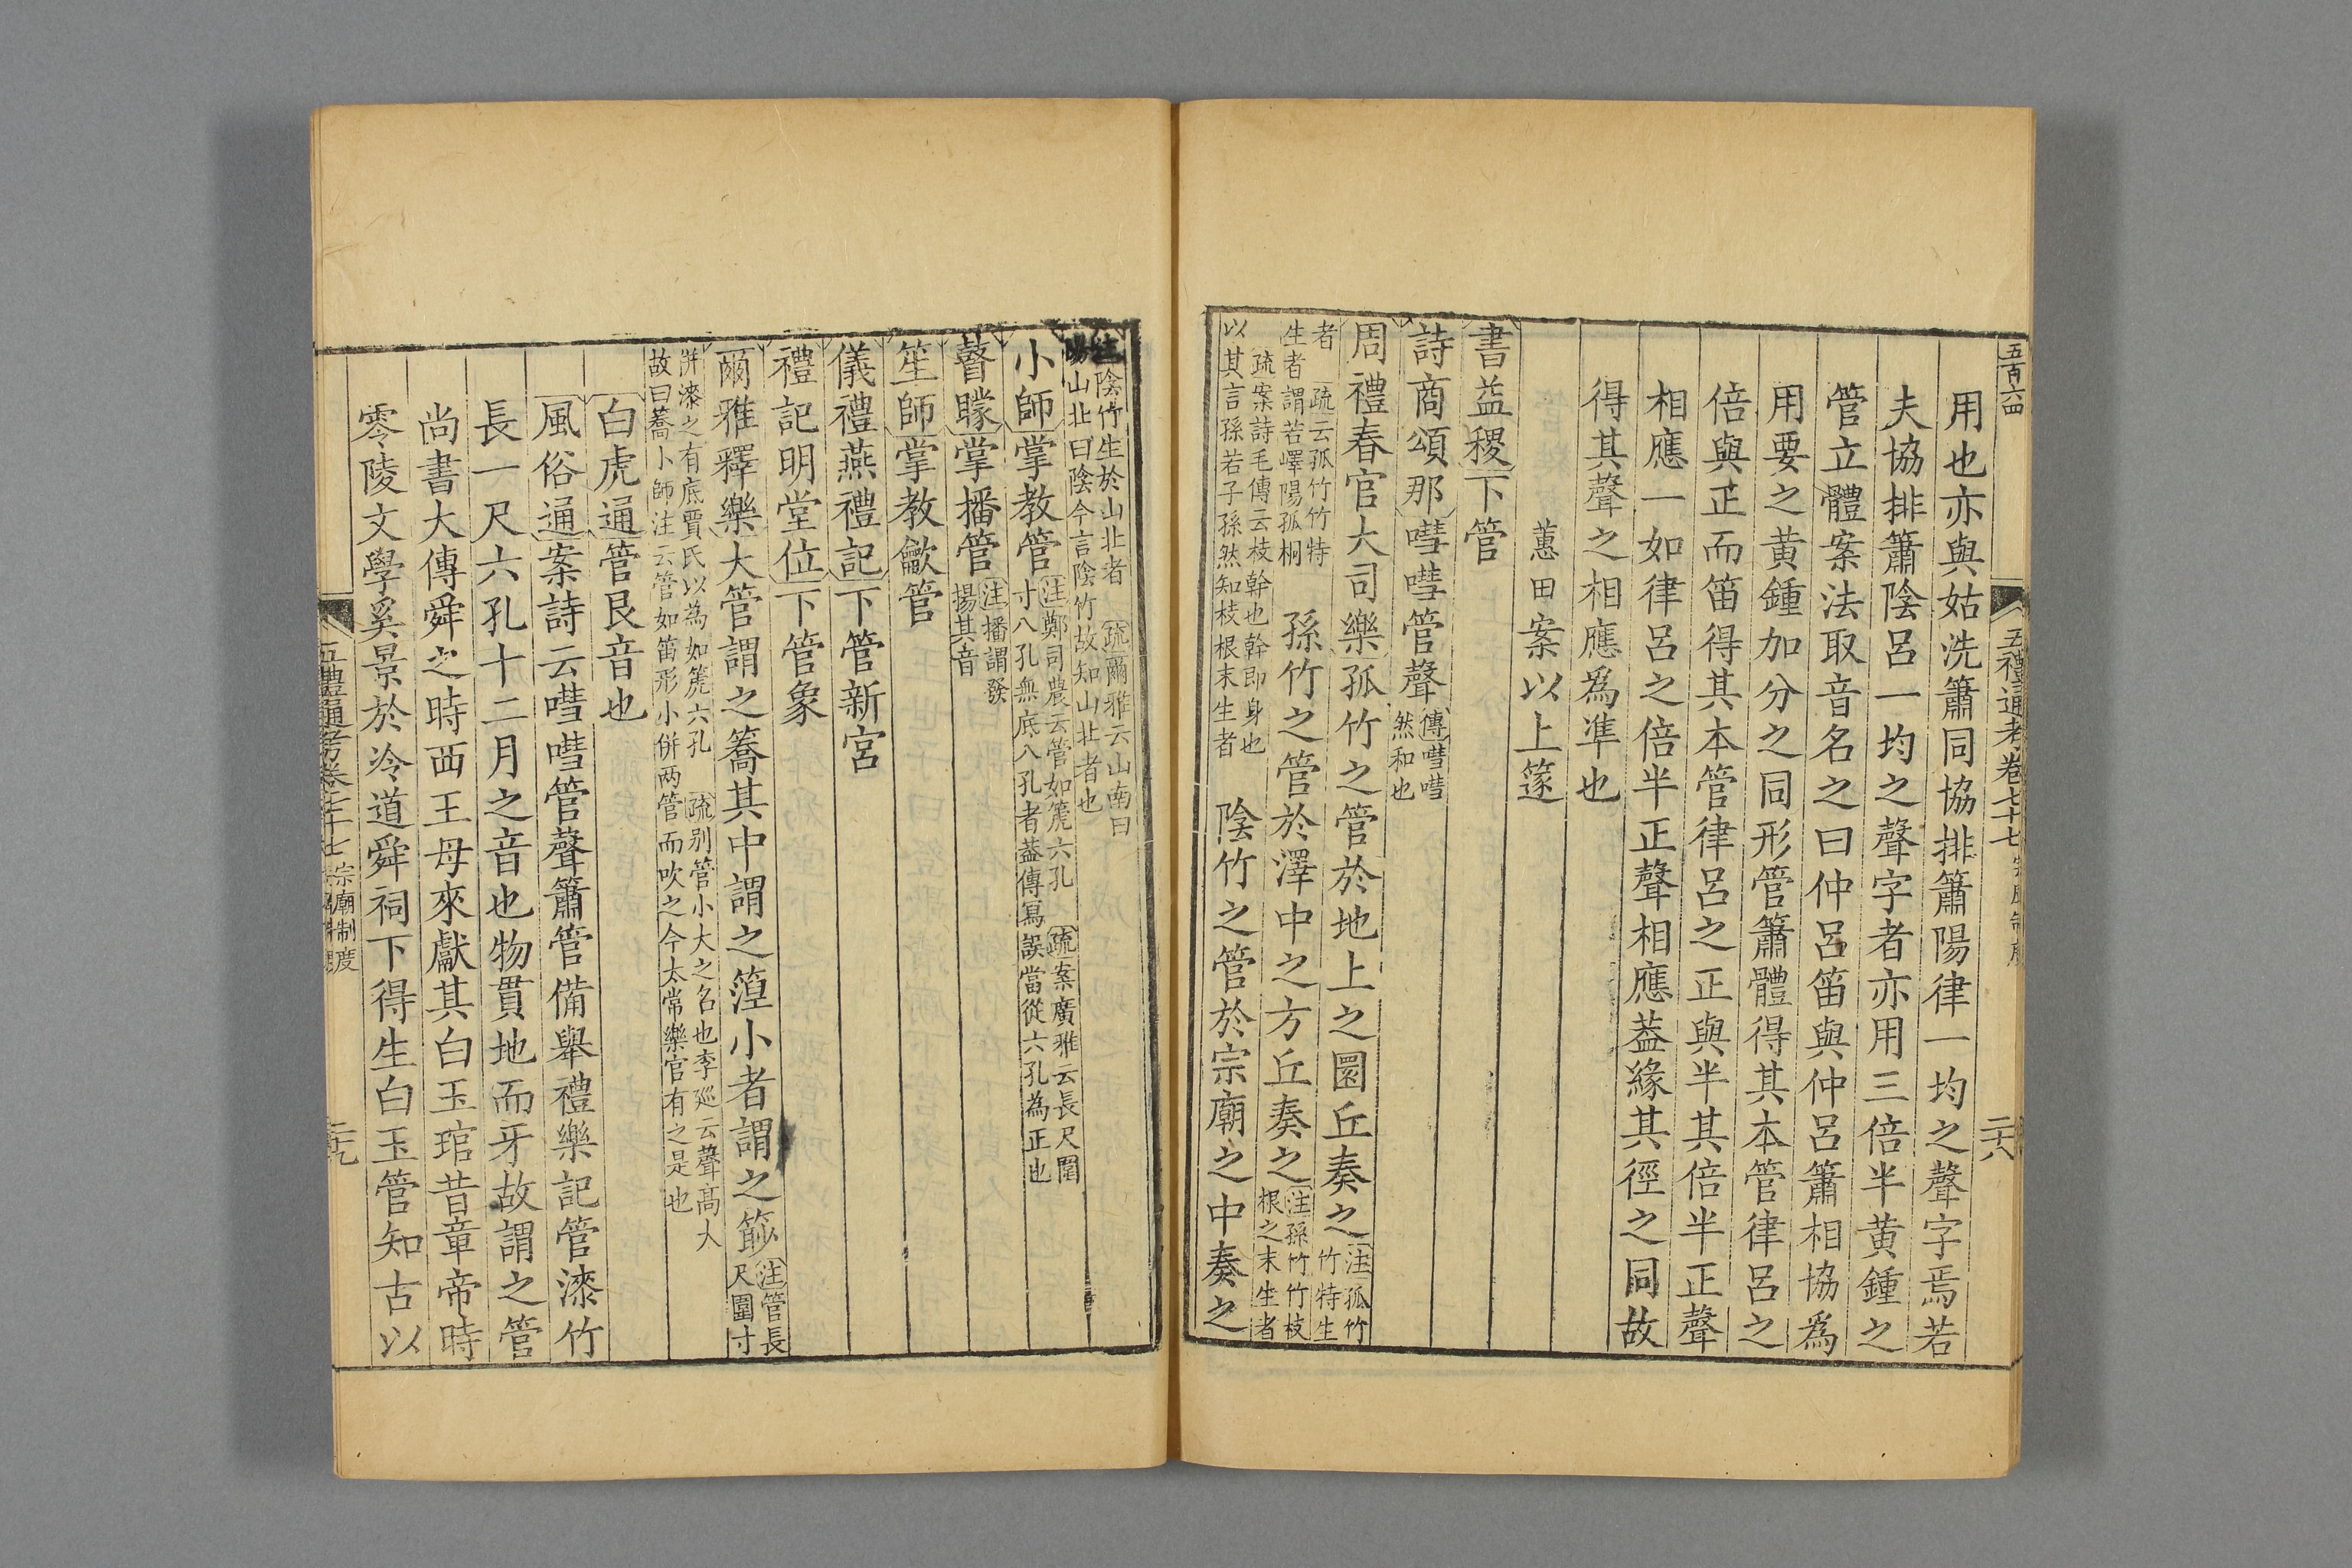 五百六四
五禮通考卷七十七 宗廟制度
二十八
用也亦與姑洗簫同協排簫陽律一均之聲字焉若
夫協排簫陰呂一均之聲字者亦用三倍半黃鍾之
管立體案法取音名之曰仲呂笛與仲呂簫相協為
用要之黃鍾加分之同形管簫體得其本管律呂之
倍與正而笛得其本管律呂之正與半其倍半正聲
相應一如律呂之倍半正聲相應葢緣其徑之同故
得其聲之相應為準也
蕙田案以上篴
書益稷下管
詩商頌那嘒嘒管聲傳嘒嘒
然和也
周禮春官大司樂孤竹之管於地上之圜丘奏之注孤竹
竹特生
者 疏云孤竹竹特
生者謂若嶧陽孤桐
孫竹之管於澤中之方丘奏之注孫竹竹枝
根之末生者
疏案詩毛傳云枝幹也幹即身也
以其言孫若子孫然知枝根末生者
陰竹之管於宗廟之中奏之
注陰竹生於山北者 疏爾雅云山南曰
陽山北曰陰今言陰竹故知山北者也
小師掌教管注鄭司農云管如篪六孔 疏案廣雅云長尺圍
寸八孔無底八孔者葢傳寫誤當從六孔為正也
瞽矇掌播管注播謂發
揚其音
笙師掌教龡管
儀禮燕禮記下管新宮
禮記明堂位下管象
爾雅釋樂大管謂之簥其中謂之篞小者謂之篎注管長
尺圍寸
併漆之有底賈氏以為如篪六孔 疏別管小大之名也李廵云聲高大
故曰簥小師注云管如笛形小併两管而吹之今太常樂官有之是也
白虎通管艮音也
風俗通案詩云嘒嘒管聲簫管備舉禮樂記管漆竹
長一尺六孔十二月之音也物貫地而牙故謂之管
尚書大傳舜之時西王母來獻其白玉琯昔章帝時
零陵文學奚景於泠道舜祠下得生白玉管知古以
五禮通考卷七十七 宗廟制度
二十九